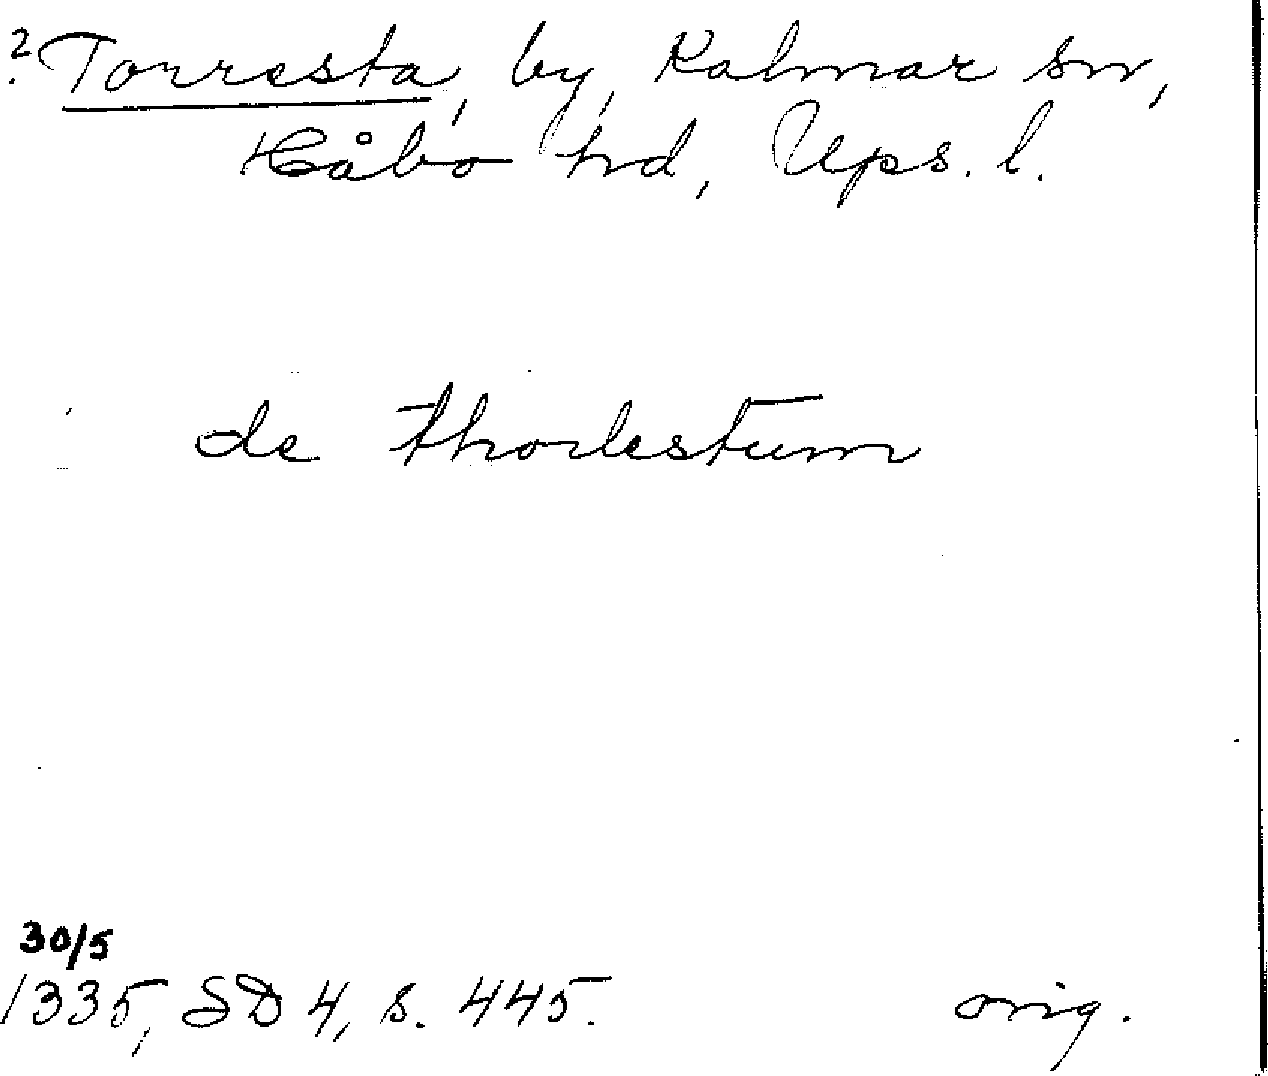 ? Torresta, by, Kalmar sn,
Håbo hd, Ups. l.
de thorlestum
30/5
1335, SD 4, s. 445.
orig.